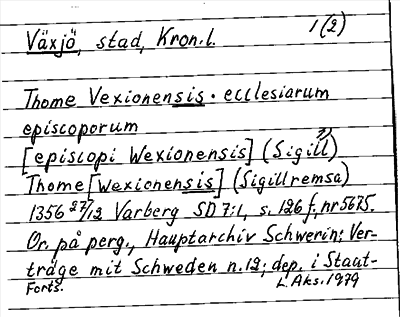 Växjö, stad, Kron.l. 1(2)
Thome Vexionensis · ecclesiarum
episcoporum
[episcopi Wexionensis] (Sigill?)
Thome [wexionensis] (Sigillremsa)
1356 27/12 Varberg SD 7:1, s. 126 f, nr 5675.
Or. på perg., Hauptarchiv Schwerin: Ver-
träge mit Schweden n. 12; dep. i Staat-
Forts. L. Aks. 1979